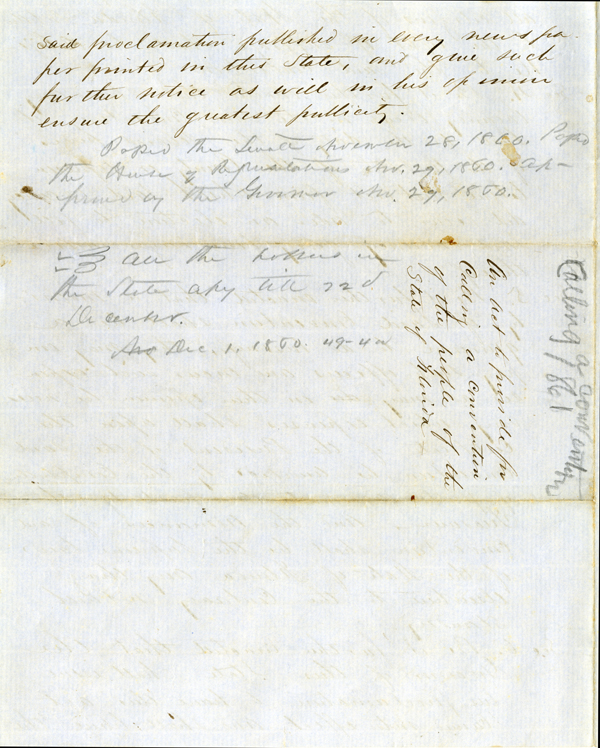 said proclamation published in every newspa-
per printed in this State, and give such
further notice as will in his opinion
ensure the greatest publicity.
Passed the Senate November 28, 1860. Passed
the House of Representatives Nov. 29, 1860. Ap-
proved by the Governor Nov. 29, 1860.
All the in
the State till 22d
December.
Dec. 1, 1860. 49-4w
An Act to provide for
Calling a convention
of the people of the
State of Florida
Calling a convention
1861